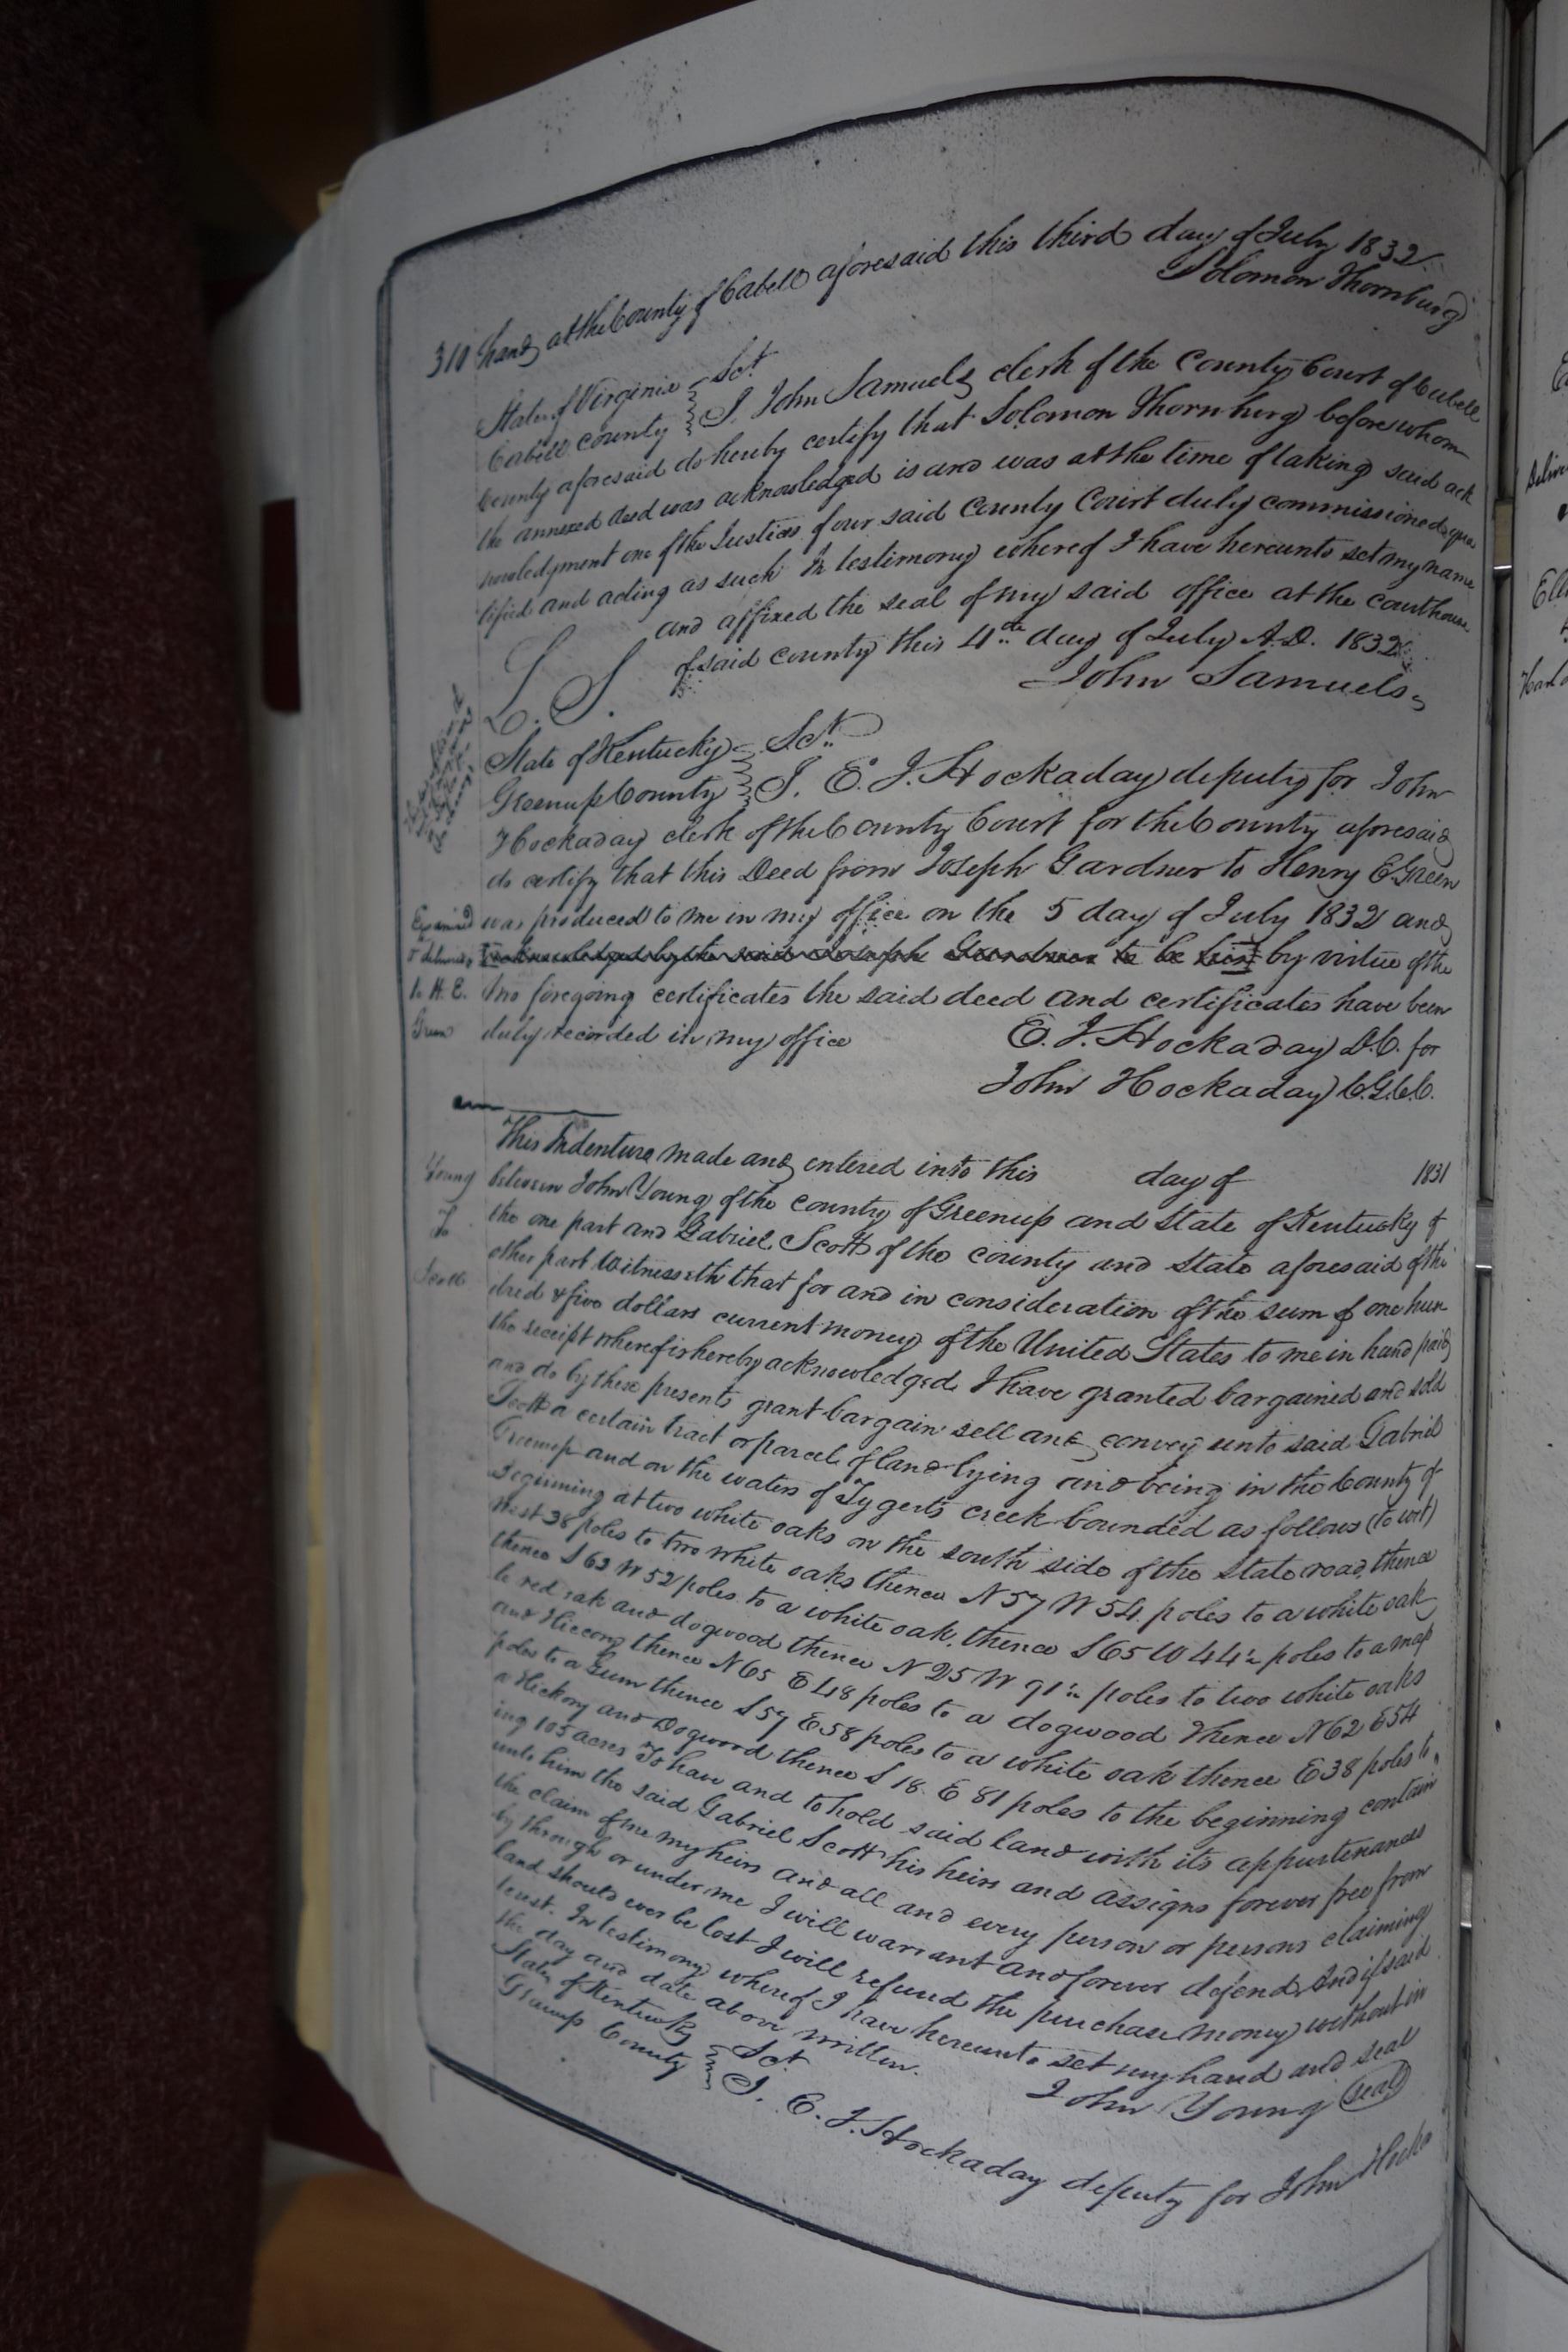 310 hand at the County of Cabell aforesaid this third day of July 1832
Solomon Thornburg
State of Virginia Sct
Cabell County I John Samuels clerk of the County Court of Cabell
County aforesaid do hereby certify that Solomon Thornburg before whom
the annexed deed was acknowledged is and was at the time of taking said ack
nowledgment one of the Justices of our said County Court duly commissioned qua
lified and acting as such In testimony whereof I have hereunto set my name
and affixed the seal of my said office at the courthouse
L. S. of said county this 4th day of July A.D. 1832
John Samuels
State of Kentucky Sct.
Greenup County I. E. J. Hockaday deputy for John
Hockaday clerk of the County Court for the County aforesaid
do certify that this Deed from Joseph Gardner to Henry E. Green
was produced to me in my office on the 5 day of July 1832 and
acknowledged by the said Joseph Gardner to be his by virtue of the
two foregoing certificates the said deed and certificates have been
duly recorded in my office E. J. Hockaday D.C. for
John Hockaday C.G.C.C.
Examined
& delivered
to H. E.
Green
This Indenture made and entered into this day of 1831
between John Young of the county of Greenup and State of Kentucky of
the one part and Gabriel Scott of the county and State aforesaid of the
other part Witnesseth that for and in consideration of the sum of one hun
dred & five dollars current money of the United States to me in hand paid
the receipt whereof is hereby acknowledged I have granted bargained and sold
and do by these presents grant bargain sell and convey unto said Gabriel
Scott a certain tract or parcel of land lying and being in the County of
Greenup and on the waters of Tygerts creek bounded as follows (to wit)
Beginning at two white oaks on the south side of the State road, thence
West 38 poles to two white oaks thence N 57 W 54 poles to a white oak
thence S 63 W 52 poles to a white oak, thence S 65 W 44 ½ poles to a map
le red oak and dogwood thence N 25 W 91 ½ poles to two white oaks
and Hiccory thence N 65 E 48 poles to a dogwood Thence N 62 E 54
poles to a Gum thence S 57 E 58 poles to a white oak thence E 38 poles to
a Hickory and Dogwood thence S 18 E 81 poles to the beginning contain
ing 105 acres To have and to hold said land with its appurtenances
unto him the said Gabriel Scott his heirs and assigns forever free from
the claim of me my heirs and all and every person or persons claiming
by through or under me I will warrant and forever defend, And if said
land should ever be lost I will refund the purchase money without in
terest. In testimony whereof I have hereunto set my hand and seal
the day and date above written. John Young (seal)
State of Kentucky Sct
Greenup County I. E. J. Hockaday deputy for John Hocka
Young
To
Scott